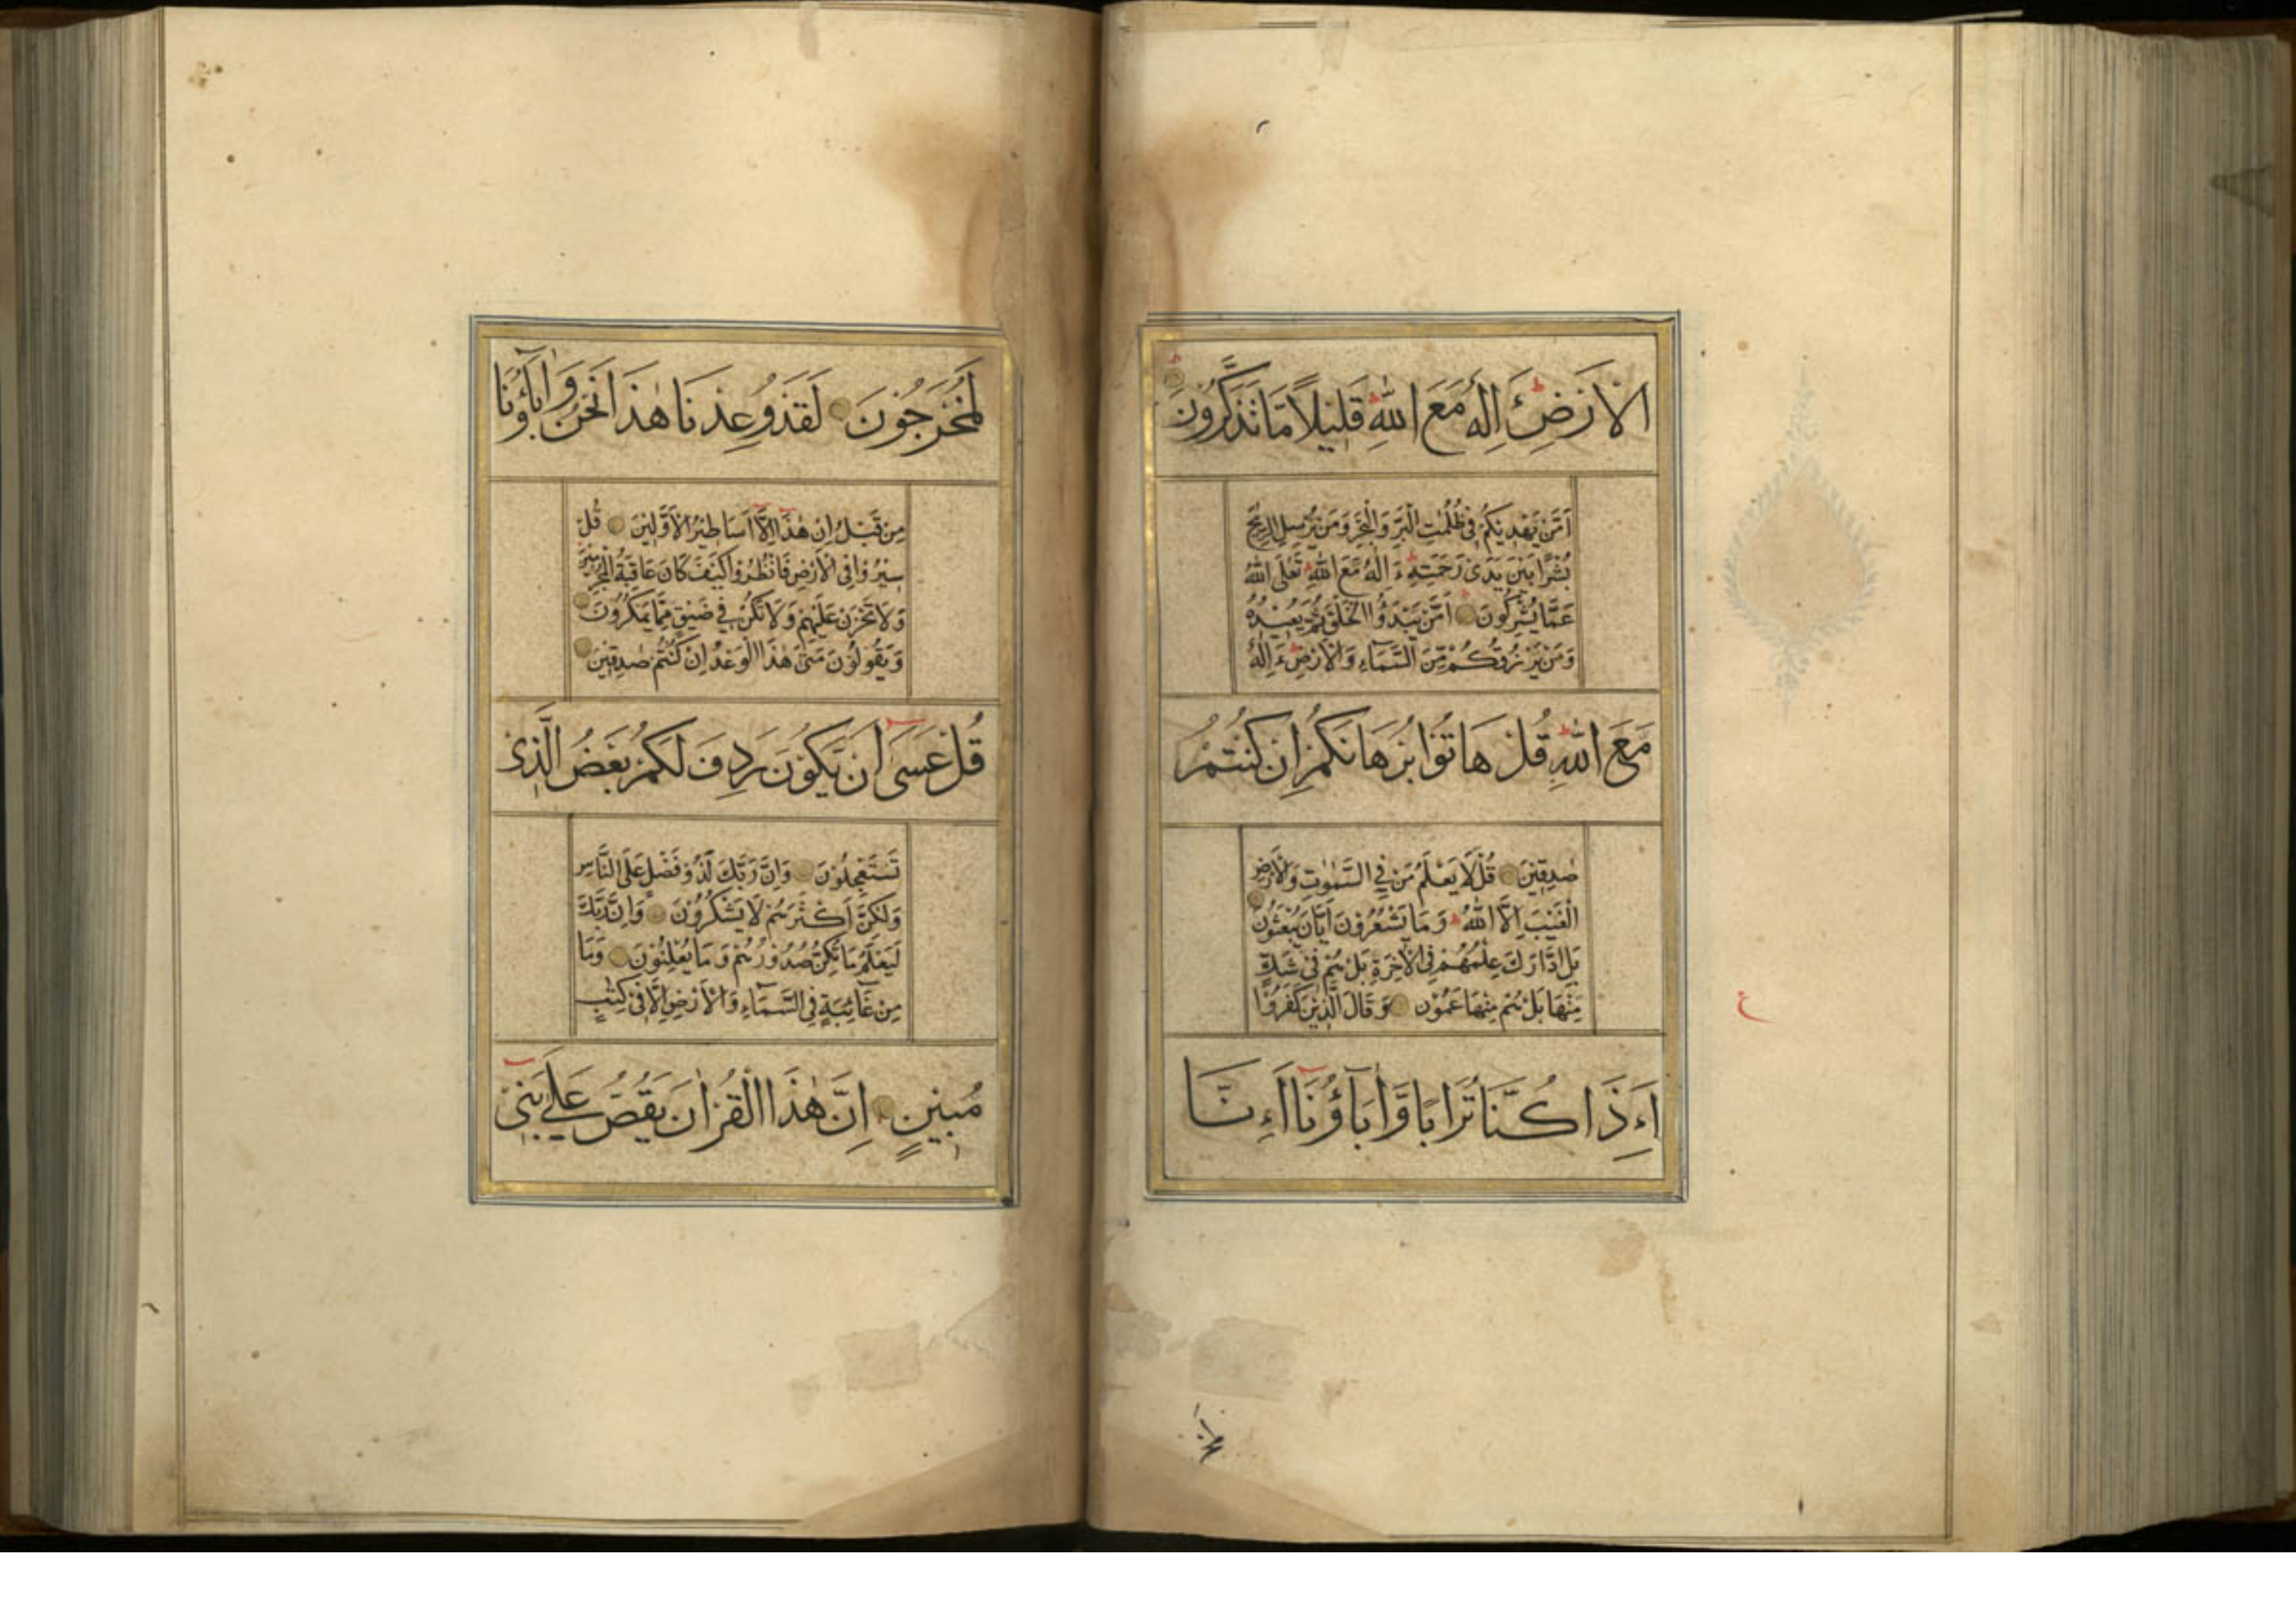 الْاَرْضِ ءَاِلٰهٌ مَعَ اللّٰهِ قَلِيْلًا مَّا تَذَكَّرُوْنَ
اَمَّنْ يَّهْدِيْكُمْ فِى ظُلُمٰتِ الْبَرِّ وَالْبَحْرِ وَمَنْ يُّرْسِلُ الرِّيٰحَ
بُشْرًا بَيْنَ يَدَىْ رَحْمَتِهٖ ءَاِلٰهٌ مَّعَ اللّٰهِ تَعٰلَى اللّٰهُ
عَمَّا يُشْرِكُوْنَ اَمَّنْ يَّبْدَؤُا الْخَلْقَ ثُمَّ يُعِيْدُهٗ
وَمَنْ يَّرْزُقُكُمْ مِّنَ السَّمَآءِ وَالْاَرْضِ ءَاِلٰهٌ
مَعَ اللّٰهِ قُلْ هَاتُوْا بُرْهَانَكُمْ اِنْ كُنْتُمْ
صٰدِقِيْنَ قُلْ لَا يَعْلَمُ مَنْ فِي السَّمٰوٰتِ وَالْاَرْضِ
الْغَيْبَ اِلَّا اللّٰهُ وَمَا يَشْعُرُوْنَ اَيَّانَ يُبْعَثُوْنَ
بَلِ ادّٰرَكَ عِلْمُهُمْ فِى الْاٰخِرَةِ بَلْ هُمْ فِىْ شَكٍّ
مِّنْهَا بَلْ هُمْ مِنْهَا عَمُوْنَ وَقَالَ الَّذِيْنَ كَفَرُوْا
اَءِذَا كُنَّا تُرَابًا وَّاٰبَآؤُنَا اَءِنَّا
ع
لَمُخْرَجُوْنَ لَقَدْ وُعِدْنَا هٰذَا نَحْنُ وَاٰبَآؤُنَا
مِنْ قَبْلُ اِنْ هٰذَا اِلَّا اَسَاطِيْرُ الْاَوَّلِيْنَ قُلْ
سِيْرُوْا فِى الْاَرْضِ فَانْظُرُوْا كَيْفَ كَانَ عَاقِبَةُ الْمُجْرِمِيْنَ
وَلَا تَحْزَنْ عَلَيْهِمْ وَلَا تَكُنْ فِيْ ضَيْقٍ مِّمَّا يَمْكُرُوْنَ
وَيَقُوْلُوْنَ مَتٰى هٰذَا الْوَعْدُ اِنْ كُنْتُمْ صٰدِقِيْنَ
قُلْ عَسٰى اَنْ يَّكُوْنَ رَدِفَ لَكُمْ بَعْضُ الَّذِىْ
تَسْتَعْجِلُوْنَ وَاِنَّ رَبَّكَ لَذُوْ فَضْلٍ عَلَى النَّاسِ
وَلٰكِنَّ اَكْثَرَهُمْ لَا يَشْكُرُوْنَ وَاِنَّ رَبَّكَ
لَيَعْلَمُ مَا تُكِنُّ صُدُوْرُهُمْ وَمَا يُعْلِنُوْنَ وَمَا
مِنْ غَآئِبَةٍ فِى السَّمَآءِ وَالْاَرْضِ اِلَّا فِىْ كِتٰبٍ
مُبِيْنٍ اِنَّ هٰذَا الْقُرْاٰنَ يَقُصُّ عَلٰى بَنِىْ